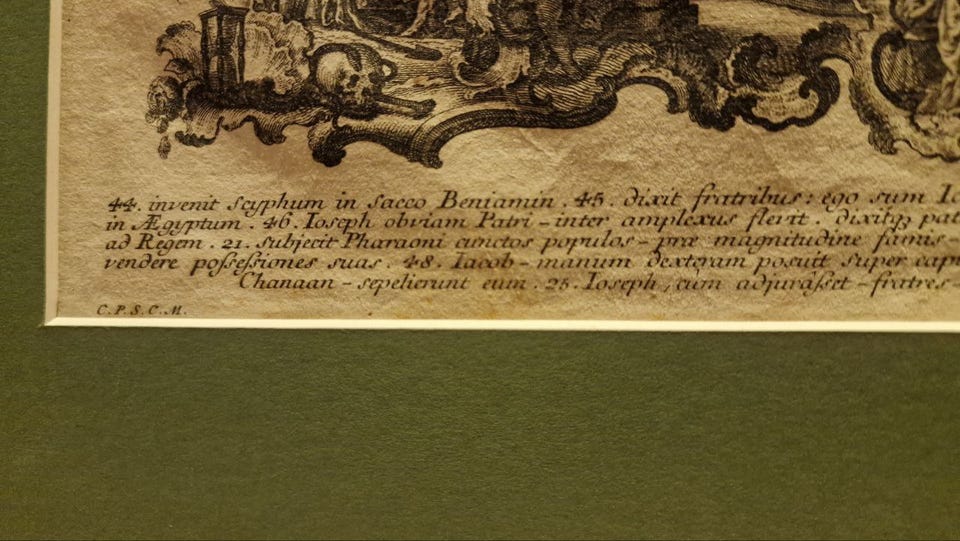 44. invenit Scyphum in sacco Beniamin. 45. dixit fratribus: ego sum
in Ægyptum. 46. Ioseph obviam Patri - inter amplexus flevit. dixitqȝ
ad Regem. 21. subjecit Pharaoni cunctos populos - præ magnitudine famis -
vendere poſseſsiones suas. 48. Iacob - manum dexteram posuit super
Chanaan - sepelierunt eum. 25. Ioseph, cum adjuráſset - fratres -
C.P.S.C.M.